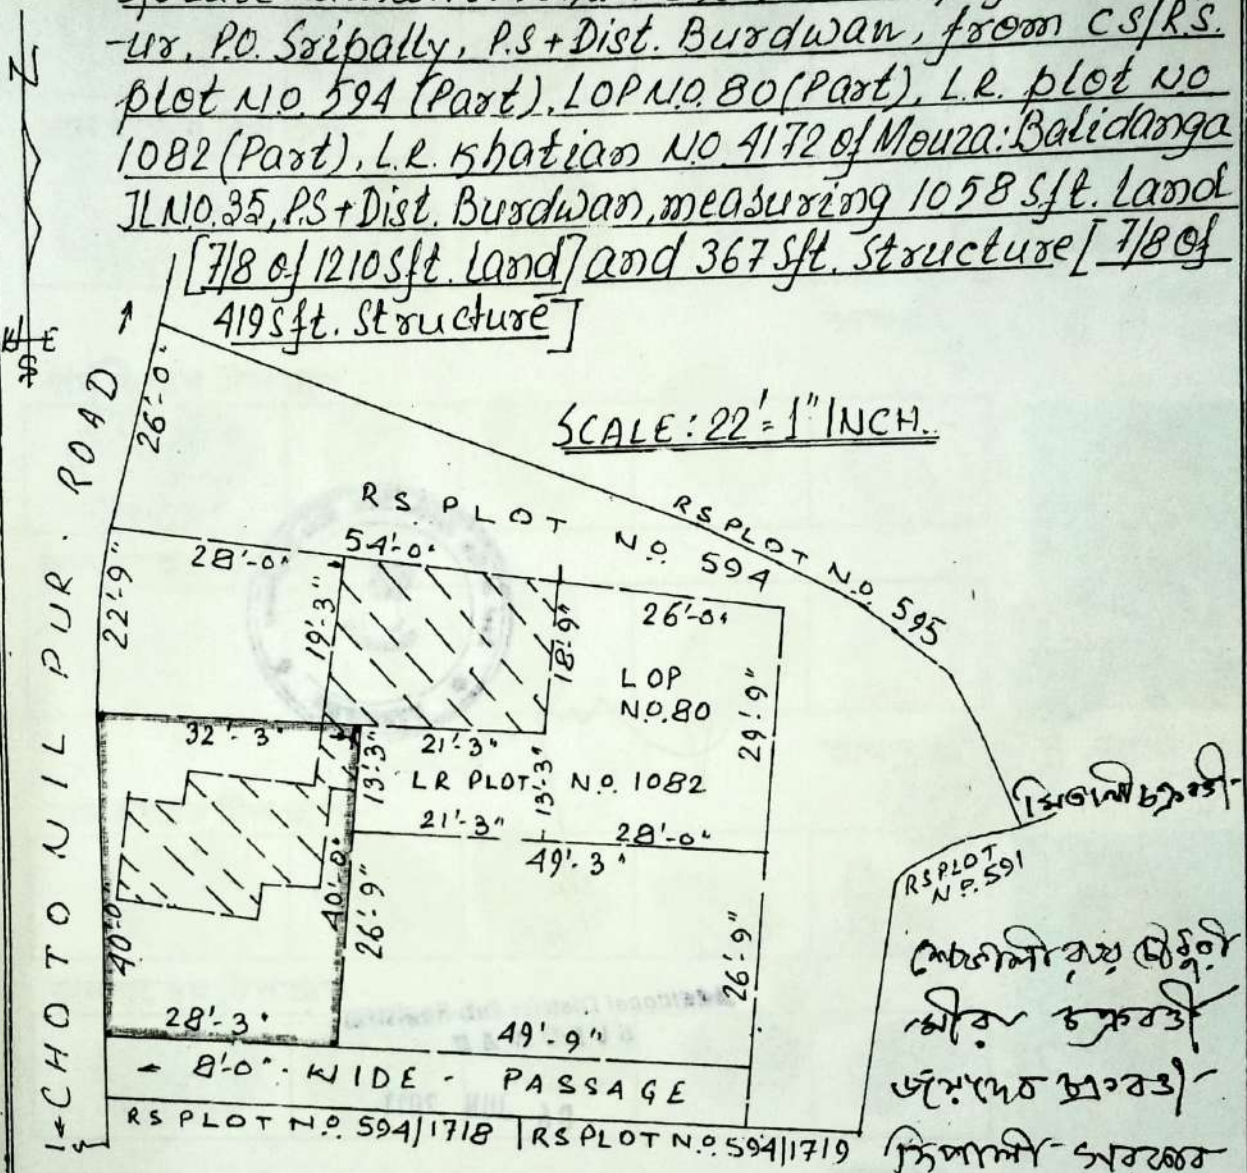 -ur, P.O. Sripally, P.S + Dist. Burdwan, from CS/R.S.
plot NO. 594 (Part), LOP NO. 80 (Part), L.R. plot NO
1082 (Part), L.R. Khatian NO 4172 of Mouza: Balidanga
JL NO. 35, P.S + Dist. Burdwan, measuring 1058 Sft. Land
[7/8 of 1210 Sft. Land] and 367 Sft. Structure [7/8 of
419 Sft. Structure]
N
W E
S
SCALE: 22' = 1" INCH.
CHOTO NILPUR. ROAD
26'-0"
RS. PLOT NO. 594
RS PLOT NO. 595
28'-0" 54'-0"
22'-9"
19'-3"
18'-9"
26'-0"
LOP
NO. 80
29'-9"
32'-3"
21'-3"
13'-3"
LR PLOT NO. 1082
13'-3"
21'-3" 28'-0"
49'-3"
40'-0"
40'-0"
26'-9"
26'-9"
28'-3"
49'-9"
8'-0" - WIDE - PASSAGE
RS PLOT NO. 594/1718 | RS PLOT NO. 594/1719
RS PLOT
NO. 591
মিতালী চক্রবর্তী
শেফালী রায় চৌধুরী
মীরা চক্রবর্তী
জয়দেব চক্রবর্তী